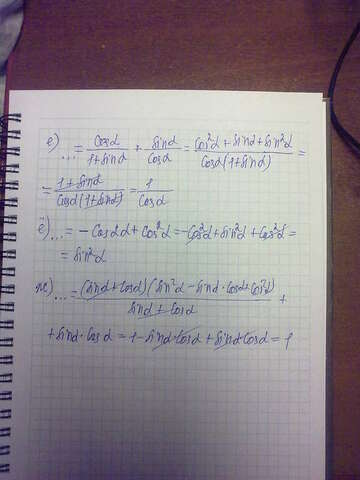 е) ... = cosα/(1+sinα) + sinα/cosα = (cos²α + sinα + sin²α)/(cosα(1+sinα)) =
= (1+sinα)/(cosα(1+sinα)) = 1/cosα
ё) ... = -cos2α + cos²α = -cos²α + sin²α + cos²α =
= sin²α
ж) ... = (sinα + cosα)(sin²α - sinα·cosα + cos²α)/(sinα + cosα) +
+ sinα·cosα = 1 - sinα·cosα + sinα·cosα = 1